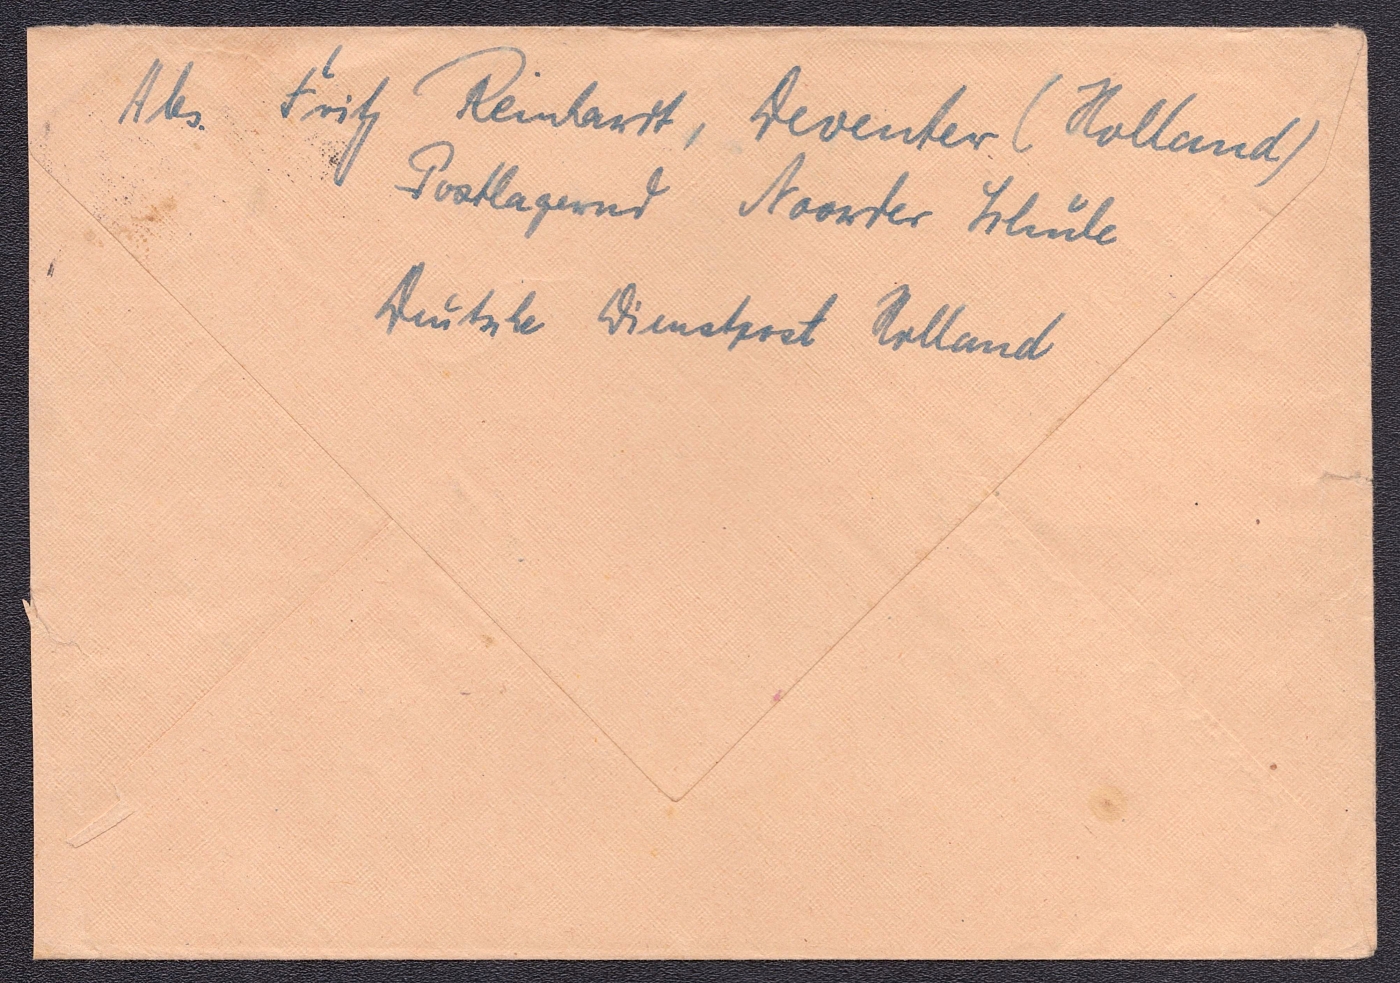 Abs. Fritz Reinhardt, Deventer (Holland)
Postlagernd Noorder Schule
Deutsche Dienstpost Holland